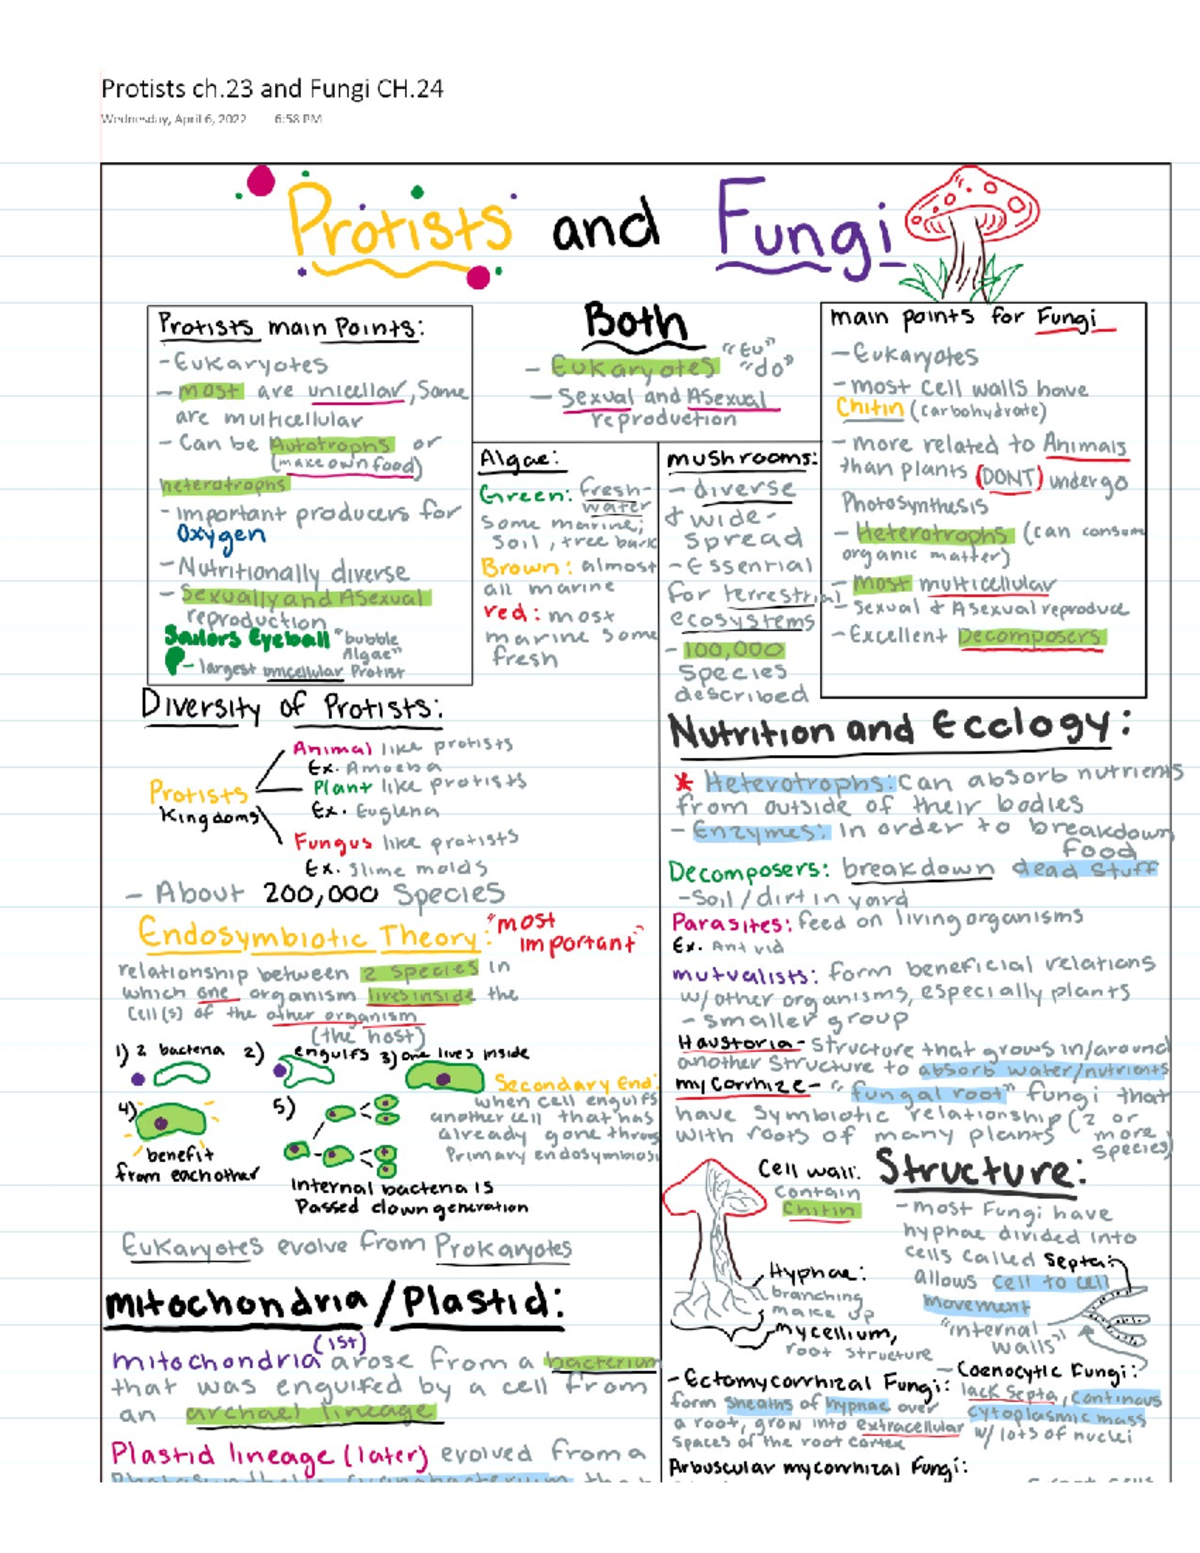 Protists ch.23 and Fungi CH.24
Wednesday, April 6, 2022 6:58 PM
Protists and Fungi
Protists main Points:
- Eukaryotes
- most are unicellar, Some
are multicellular
- Can be Autotrophs or
(make own food)
heterotrophs
- Important producers for
Oxygen
- Nutritionally diverse
- Sexually and Asexual
reproduction
Sailors Eyeball "bubble
Algae"
- largest unicellular Protist
Both
- Eukaryotes "Eu" "do"
- Sexual and Asexual
reproduction
Algae:
Green: fresh-
water
some marine,
Soil, tree bark
Brown: almost
all marine
red: most
marine some
fresh
mushrooms:
- diverse
& wide-
spread
- Essential
for terrestrial
ecosystems
- 100,000
Species
described
main points for Fungi
- Eukaryotes
- most cell walls have
Chitin (carbohydrate)
- more related to Animals
than plants (DONT) undergo
Photosynthesis
- Heterotrophs (can consum
organic matter)
- most multicellular
- Sexual & Asexual reproduce
- Excellent Decomposers
Diversity of Protists:
Protists
Kingdoms
Animal like protists
Ex. Amoeba
Plant like protists
Ex. Euglena
Fungus like protists
Ex. Slime molds
- About 200,000 Species
Endosymbiotic Theory: "most
important"
relationship between 2 species in
which one organism lives inside the
Cell(s) of the other organism
(the host)
1) 2 bacteria 2) engulfs 3) one lives inside
4) benefit
from each other
5)
Internal bacteria is
Passed down generation
Secondary End:
when cell engulfs
another cell that has
already gone throug
Primary endosymbiosi
Eukaryotes evolve from Prokaryotes
mitochondria / Plastid:
(1st)
mitochondria arose from a bacterium
that was engulfed by a cell from
an archael lineage
Plastid lineage (later) evolved from a
Photosynthetic cyanobacterium that
Nutrition and Ecology:
* Heterotrophs: can absorb nutrients
from outside of their bodies
- Enzymes: in order to breakdown
food
Decomposers: breakdown dead stuff
- Soil / dirt in yard
Parasites: feed on living organisms
Ex. Ant vid
mutualists: form beneficial relations
w/ other organisms, especially plants
- smaller group
Haustoria - Structure that grows in/around
another structure to absorb water/nutrients
mycorrhize - "fungal root" fungi that
have symbiotic relationship (2 or
with roots of many plants more
species)
Structure:
Cell wall:
Contain
Chitin
Hyphae:
branching
make up
mycellium,
root structure
- most Fungi have
hyphae divided into
cells called septa:
allows cell to cell
movement
"internal
walls"
- Coenocytic Fungi:
lack septa, continous
cytoplasmic mass
w/ lots of nuclei
- Ectomycorrhizal Fungi:
form sheaths of hyphae over
a root, grow into extracellular
spaces of the root cortex
Arbuscular mycorrhizal Fungi: